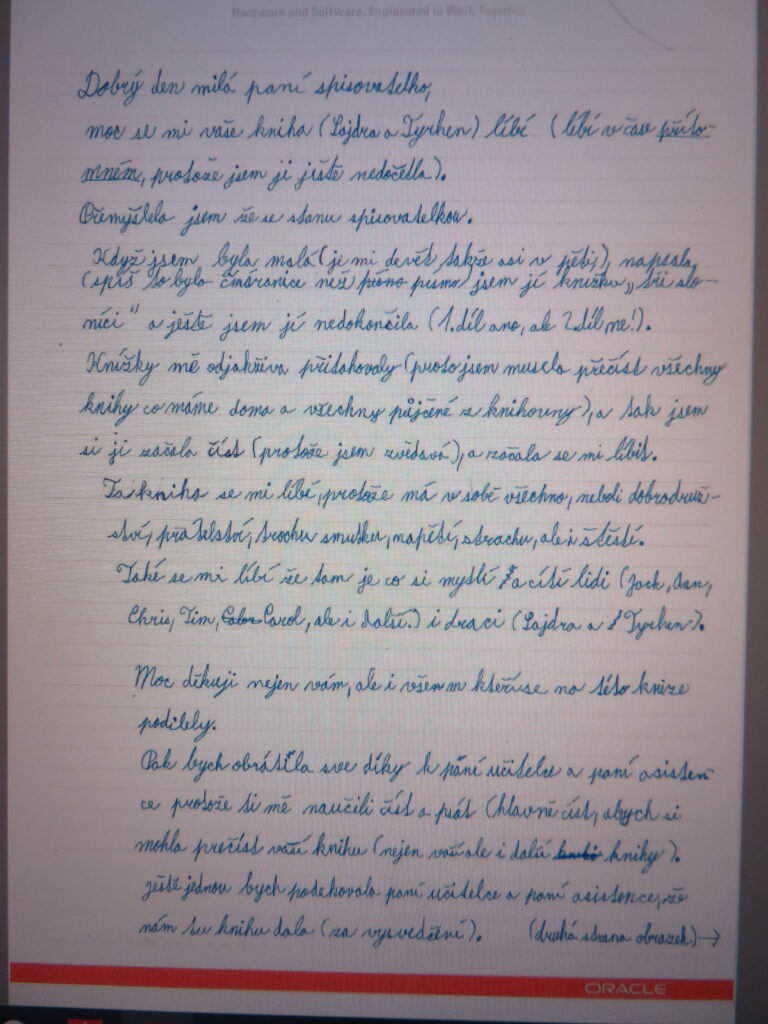 Hardware and Software, Engineered to Work Together
Dobrý den milá paní spisovatelko,
moc se mi vaše kniha (Sajdra a Tyrhen) líbí (líbí v čase příto-
mném, protože jsem ji ještě nedočetla).
Přemýšlela jsem že se stanu spisovatelkou.
Když jsem byla malá (je mi devět takže asi v pěti), napsala
(spíš to bylo čmáranice než písmo písmo) jsem jí knížku „tři slo-
níci" a ještě jsem jí nedokončila (1. díl ano, ale 2. díl ne!).
Knížky mě odjakživa přitahovaly (proto jsem musela přečíst všechny
knihy co máme doma a všechny půjčené z knihovny), a tak jsem
si ji začala číst (protože jsem zvědavá), a začala se mi líbit.
Ta kniha se mi líbí, protože má v sobě všechno, neboli dobrodruž-
ství, přátelství, trochu smutku, napětí, strachu, ale i štěstí.
Také se mi líbí že tam je co si myslí a cítí lidi (Jack, Ann,
Chris, Tim, Carol, ale i další.) i draci (Sajdra a Tyrhen).
Moc děkuji nejen vám, ale i všem m kteří se na této knize
podílely.
Pak bych obrátila sve díky k pání učitelce a paní asisten-
ce protože ti mě naučili číst a psát (hlavně číst, abych si
mohla prečíst vaší knihu (nejen vaší ale i další knihy).
ještě jednou bych podekovala paní učitelce a paní asistence, že
nám tu knihu dala (za vysvedčení). (druhá strana obrazek) →
ORACLE